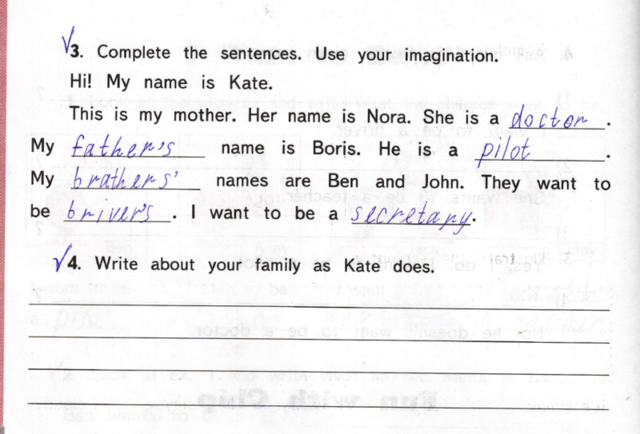 √3. Complete the sentences. Use your imagination.
Hi! My name is Kate.
This is my mother. Her name is Nora. She is a doctor.
My father's name is Boris. He is a pilot.
My brathers' names are Ben and John. They want to
be briver's. I want to be a secretary.
√4. Write about your family as Kate does.